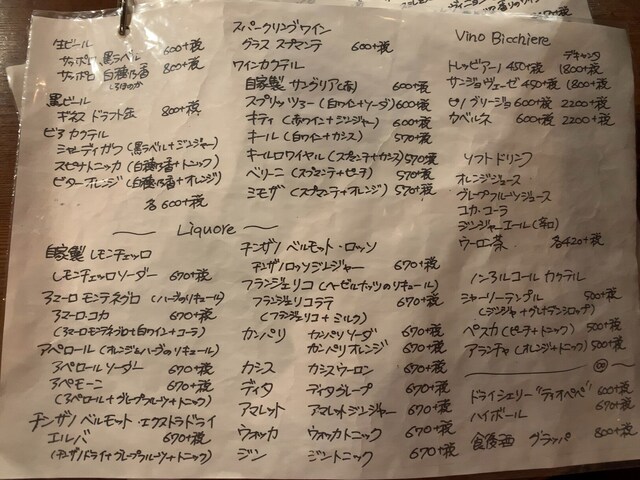 生ビール
サッポロ 黒ラベル 600+税
サッポロ 白穂乃香 800+税
しろほのか
黒ビール
ギネス ドラフト缶 800+税
ビアカクテル
シャンディガフ (黒ラベル+ジンジャー)
スピナトニッカ (白穂乃香+トニック)
ビターオレンジ (白穂乃香+オレンジ)
各600+税
スパークリングワイン
グラス スプマンテ 600+税
ワインカクテル
自家製 サングリア(赤) 600+税
スプリッツァー (白ワイン+ソーダ) 600+税
キティ (赤ワイン+ジンジャー) 600+税
キール (白ワイン+カシス) 570+税
キールロワイヤル (スプマンテ+カシス) 570+税
ベリーニ (スプマンテ+ピーチ) 570+税
ミモザ (スプマンテ+オレンジ) 570+税
Vino Bicchiere
デキャンタ
トレッビアーノ 450+税 1800+税
サンジョヴェーゼ 450+税 1800+税
ピノグリージョ 600+税 2200+税
カベルネ 600+税 2200+税
ソフトドリンク
オレンジジュース
グレープフルーツジュース
コカ・コーラ
ジンジャーエール(辛口)
ウーロン茶 各420+税
Liquore
自家製 レモンチェッロ
レモンチェッロソーダー 670+税
アマーロ モンテネグロ (ハーブのリキュール)
アマーロ・コカ 670+税
(アマーロモンテネグロ+白ワイン+コーラ)
アペロール (オレンジ&ハーブのリキュール)
アペロールソーダー 670+税
アペモーニ 670+税
(アペロール+グレープフルーツ+トニック)
チンザノ ベルモット・エクストラドライ
エルバ 670+税
(チンザノドライ+グレープフルーツ+トニック)
チンザノ ベルモット・ロッソ
チンザノロッソジンジャー 670+税
フランジェリコ (ヘーゼルナッツのリキュール)
フランジェリコラテ 670+税
(フランジェリコ+ミルク)
カンパリ カンパリソーダ 670+税
カンパリオレンジ 670+税
カシス カシスウーロン 670+税
ディタ ディタグレープ 670+税
アマレット アマレットジンジャー 670+税
ウォッカ ウォッカトニック 670+税
ジン ジントニック 670+税
ノンアルコール カクテル
シャーリーテンプル 500+税
(ジンジャー+グレナデンシロップ)
ペスカ (ピーチ+トニック) 500+税
アランチャ (オレンジ+トニック) 500+税
ドライシェリー "ティオペペ" 600+税
ハイボール 670+税
食後酒 グラッパ 800+税